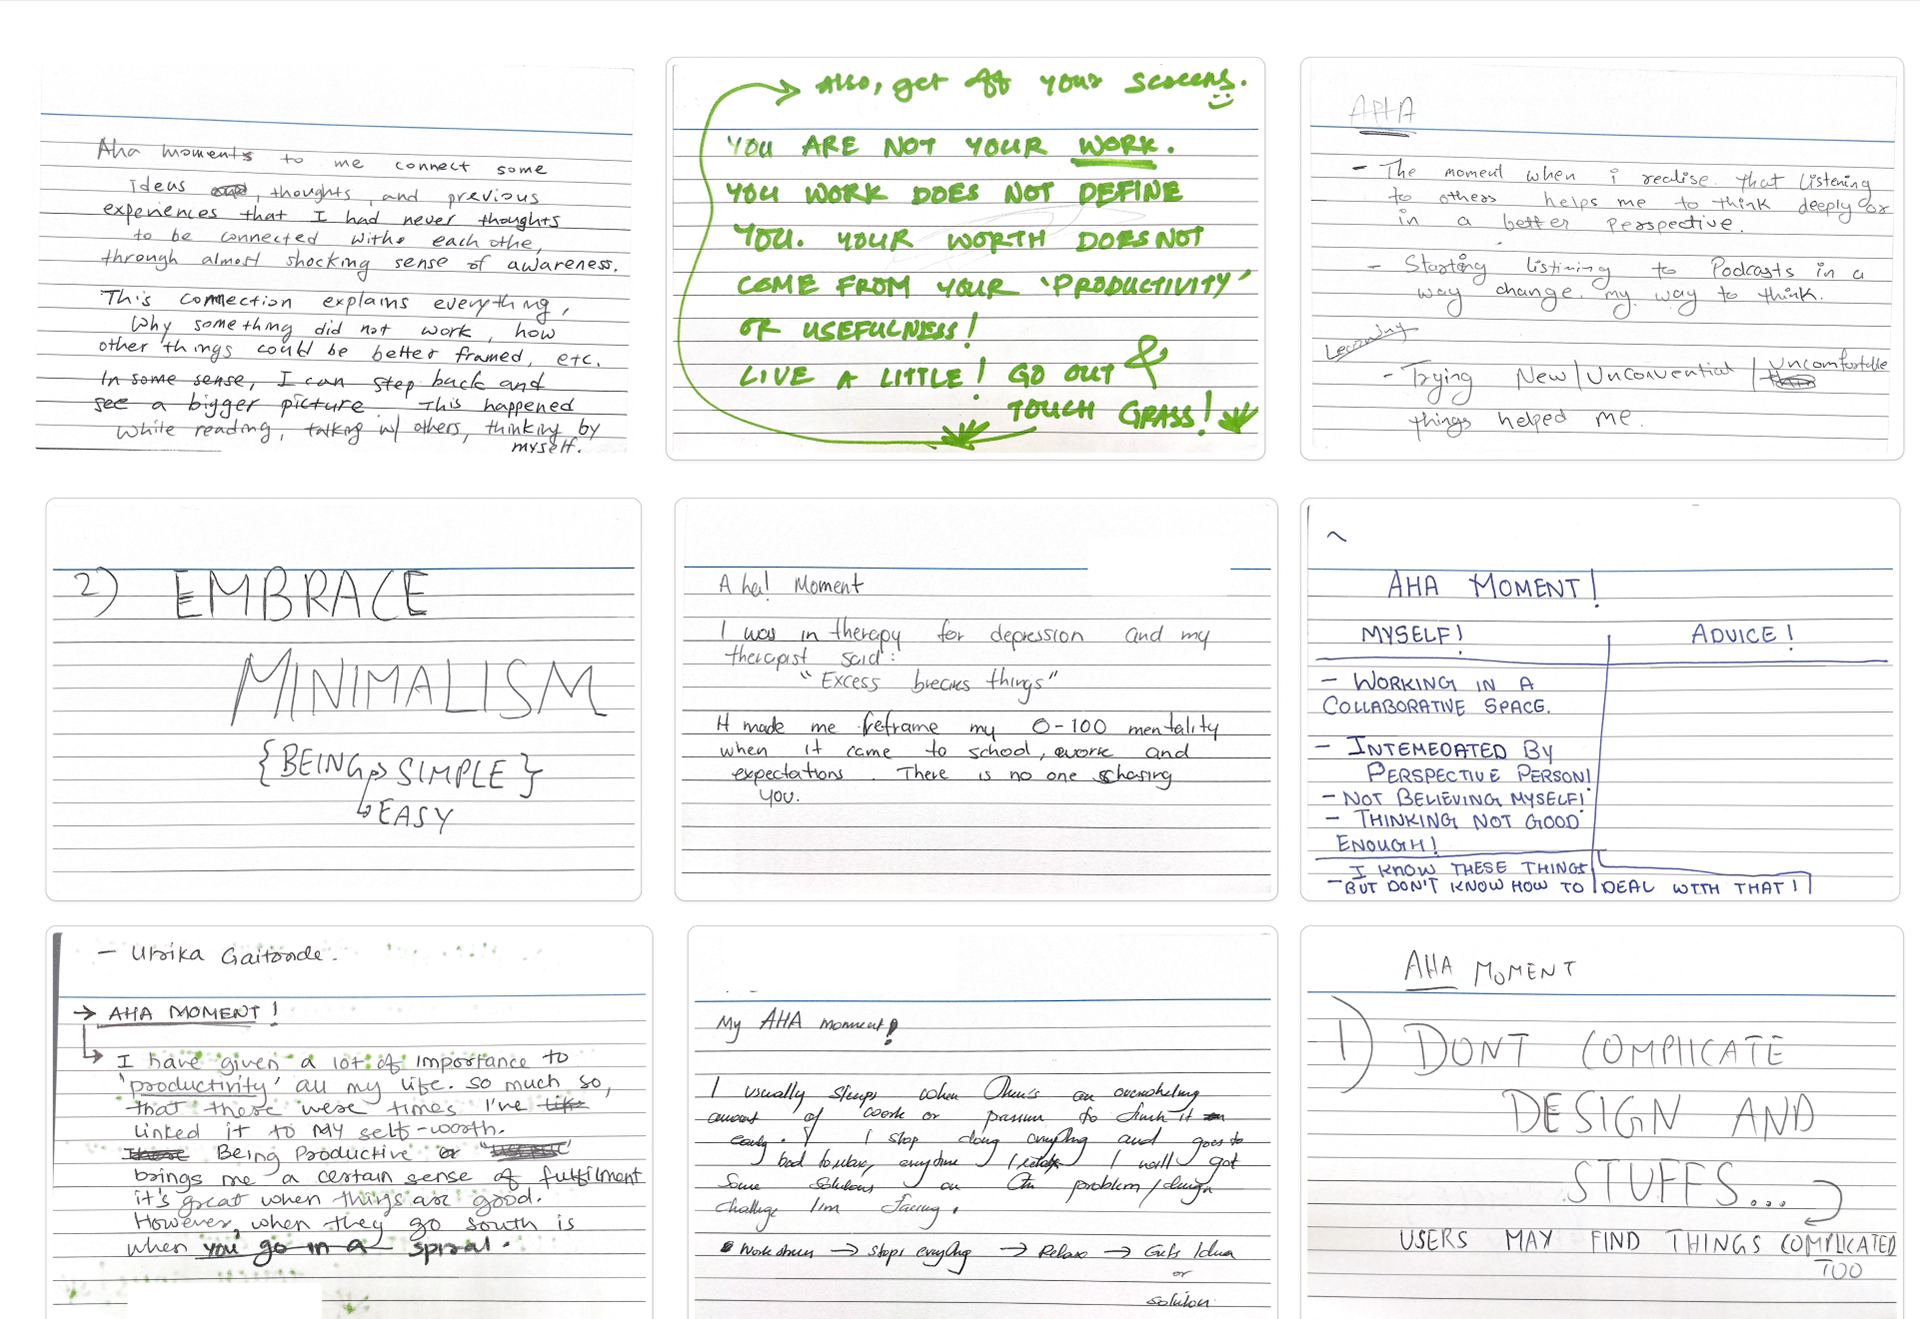 Aha moments to me connect some
ideas and, thoughts, and previous
experiences that I had never thoughts
to be connected with each othe,
through almost shocking sense of awareness.
This connection explains everything,
Why something did not work, how
other things could be better framed, etc.
In some sense, I can step back and
see a bigger picture. This happened
while reading, talking w/ others, thinking by
myself.
Also, get off your screens.
YOU ARE NOT YOUR WORK.
YOU WORK DOES NOT DEFINE
YOU. YOUR WORTH DOES NOT
COME FROM YOUR 'PRODUCTIVITY'
OR USEFULNESS!
LIVE A LITTLE! GO OUT &
TOUCH GRASS!
AHA
- The moment when i realise that listening
to others helps me to think deeply or
in a better perspective.
- Starting listining to Podcasts in a
way change my way to think.
Learning
- Trying New/Unconvential/Uncomfortable
things helped me.
2) EMBRACE
MINIMALISM
{BEING → SIMPLE}
↳ EASY
Aha! Moment
I was in therapy for depression and my
therapist said:
"Excess breaks things"
It made me reframe my 0-100 mentality
when it came to school, work and
expectations. There is no one chasing
you.
AHA MOMENT!
MYSELF! ADVICE!
- WORKING IN A
COLLABORATIVE SPACE.
- INTEMEDATED BY
PERSPECTIVE PERSON!
- NOT BELIEVING MYSELF!
- THINKING NOT GOOD
ENOUGH!
I KNOW THESE THINGS
- BUT DON'T KNOW HOW TO DEAL WITH THAT!
- Urika Gaitonde.
→ AHA MOMENT!
↳ I have given a lot of importance to
'productivity' all my life. so much so,
that there were times I've like
linked it to my self-worth.
Being Productive or
brings me a certain sense of fulfilment
it's great when things are good.
However, when they go south is
when you go in a spiral.
My AHA moment!
I usually sleep when there's an overwhelming
amount of work or pressure to finish it
early. I stop doing anything and goes to
bed to relax, anytime I relax I will get
some solutions on the problem/design
challenge I'm facing.
Work stress → stops everything → Relax → Gets Idea
or
solution
AHA MOMENT
1) DONT COMPLICATE
DESIGN AND
STUFFS...
USERS MAY FIND THINGS COMPLICATED
TOO